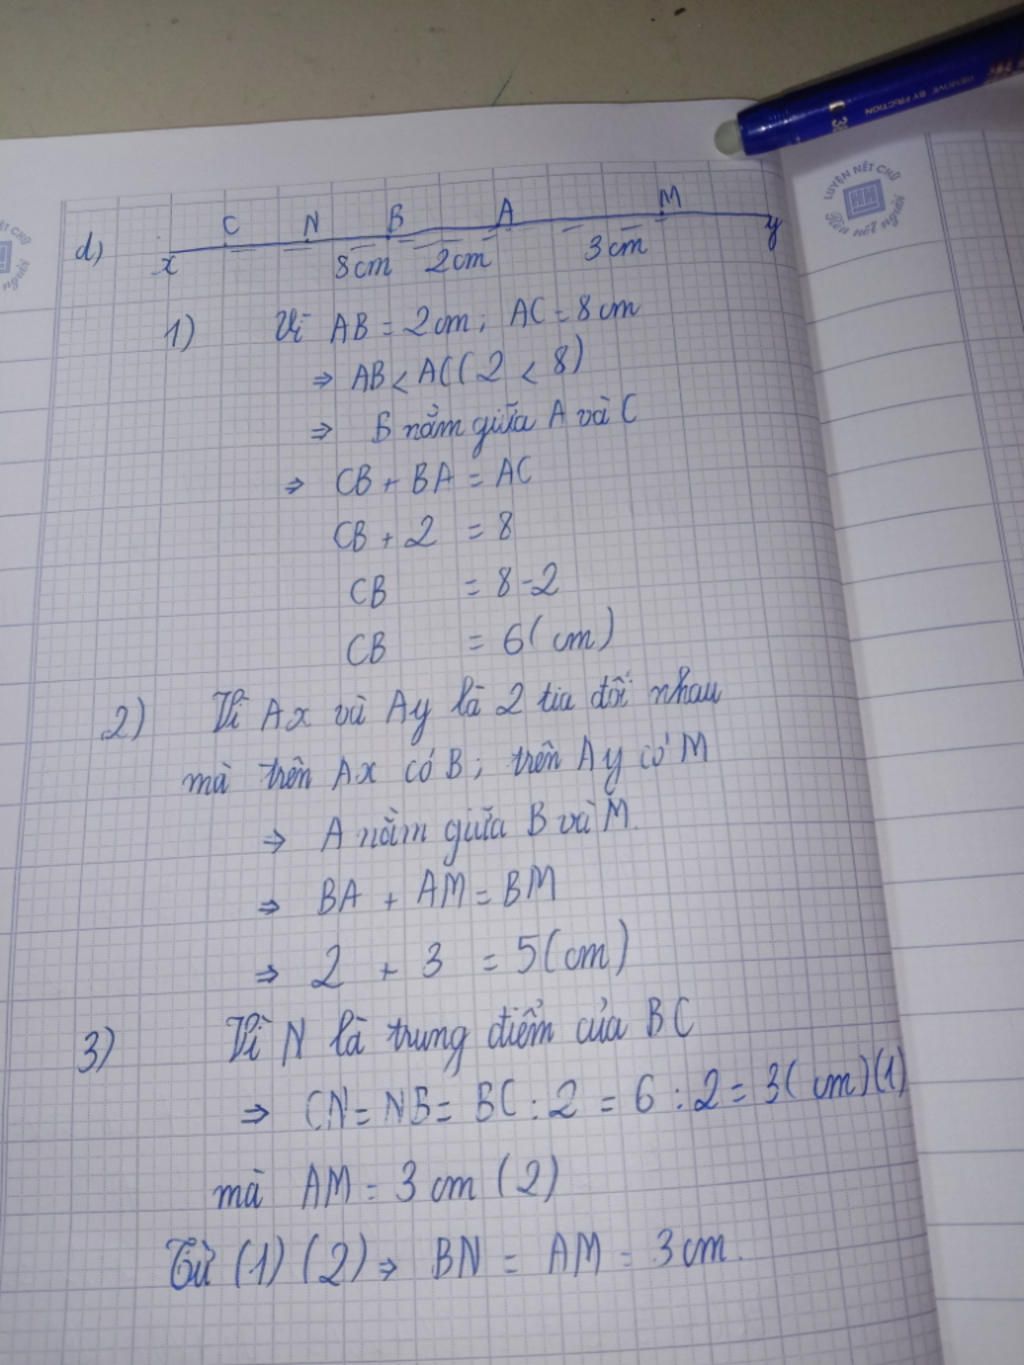 REMOVE BY FRICTION
LUYỆN NÉT CHỮ
Rèn nết người
C N B A M
d)
x 8cm 2cm 3cm y
1) Vì AB = 2cm; AC = 8cm
⇒ AB < AC (2 < 8)
⇒ B nằm giữa A và C
⇒ CB + BA = AC
CB + 2 = 8
CB = 8-2
CB = 6 (cm)
2) Vì Ax và Ay là 2 tia đối nhau
mà trên Ax có B; trên Ay có M
⇒ A nằm giữa B và M.
⇒ BA + AM = BM
⇒ 2 + 3 = 5 (cm)
3) Vì N là trung điểm của BC
⇒ CN = NB = BC : 2 = 6 : 2 = 3 (cm) (1)
mà AM = 3 cm (2)
Từ (1) (2) ⇒ BN = AM = 3 cm.